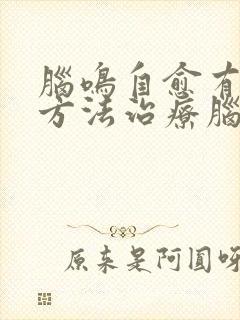 腦鳴自愈有
方法治療腦
原来是阿圓呀